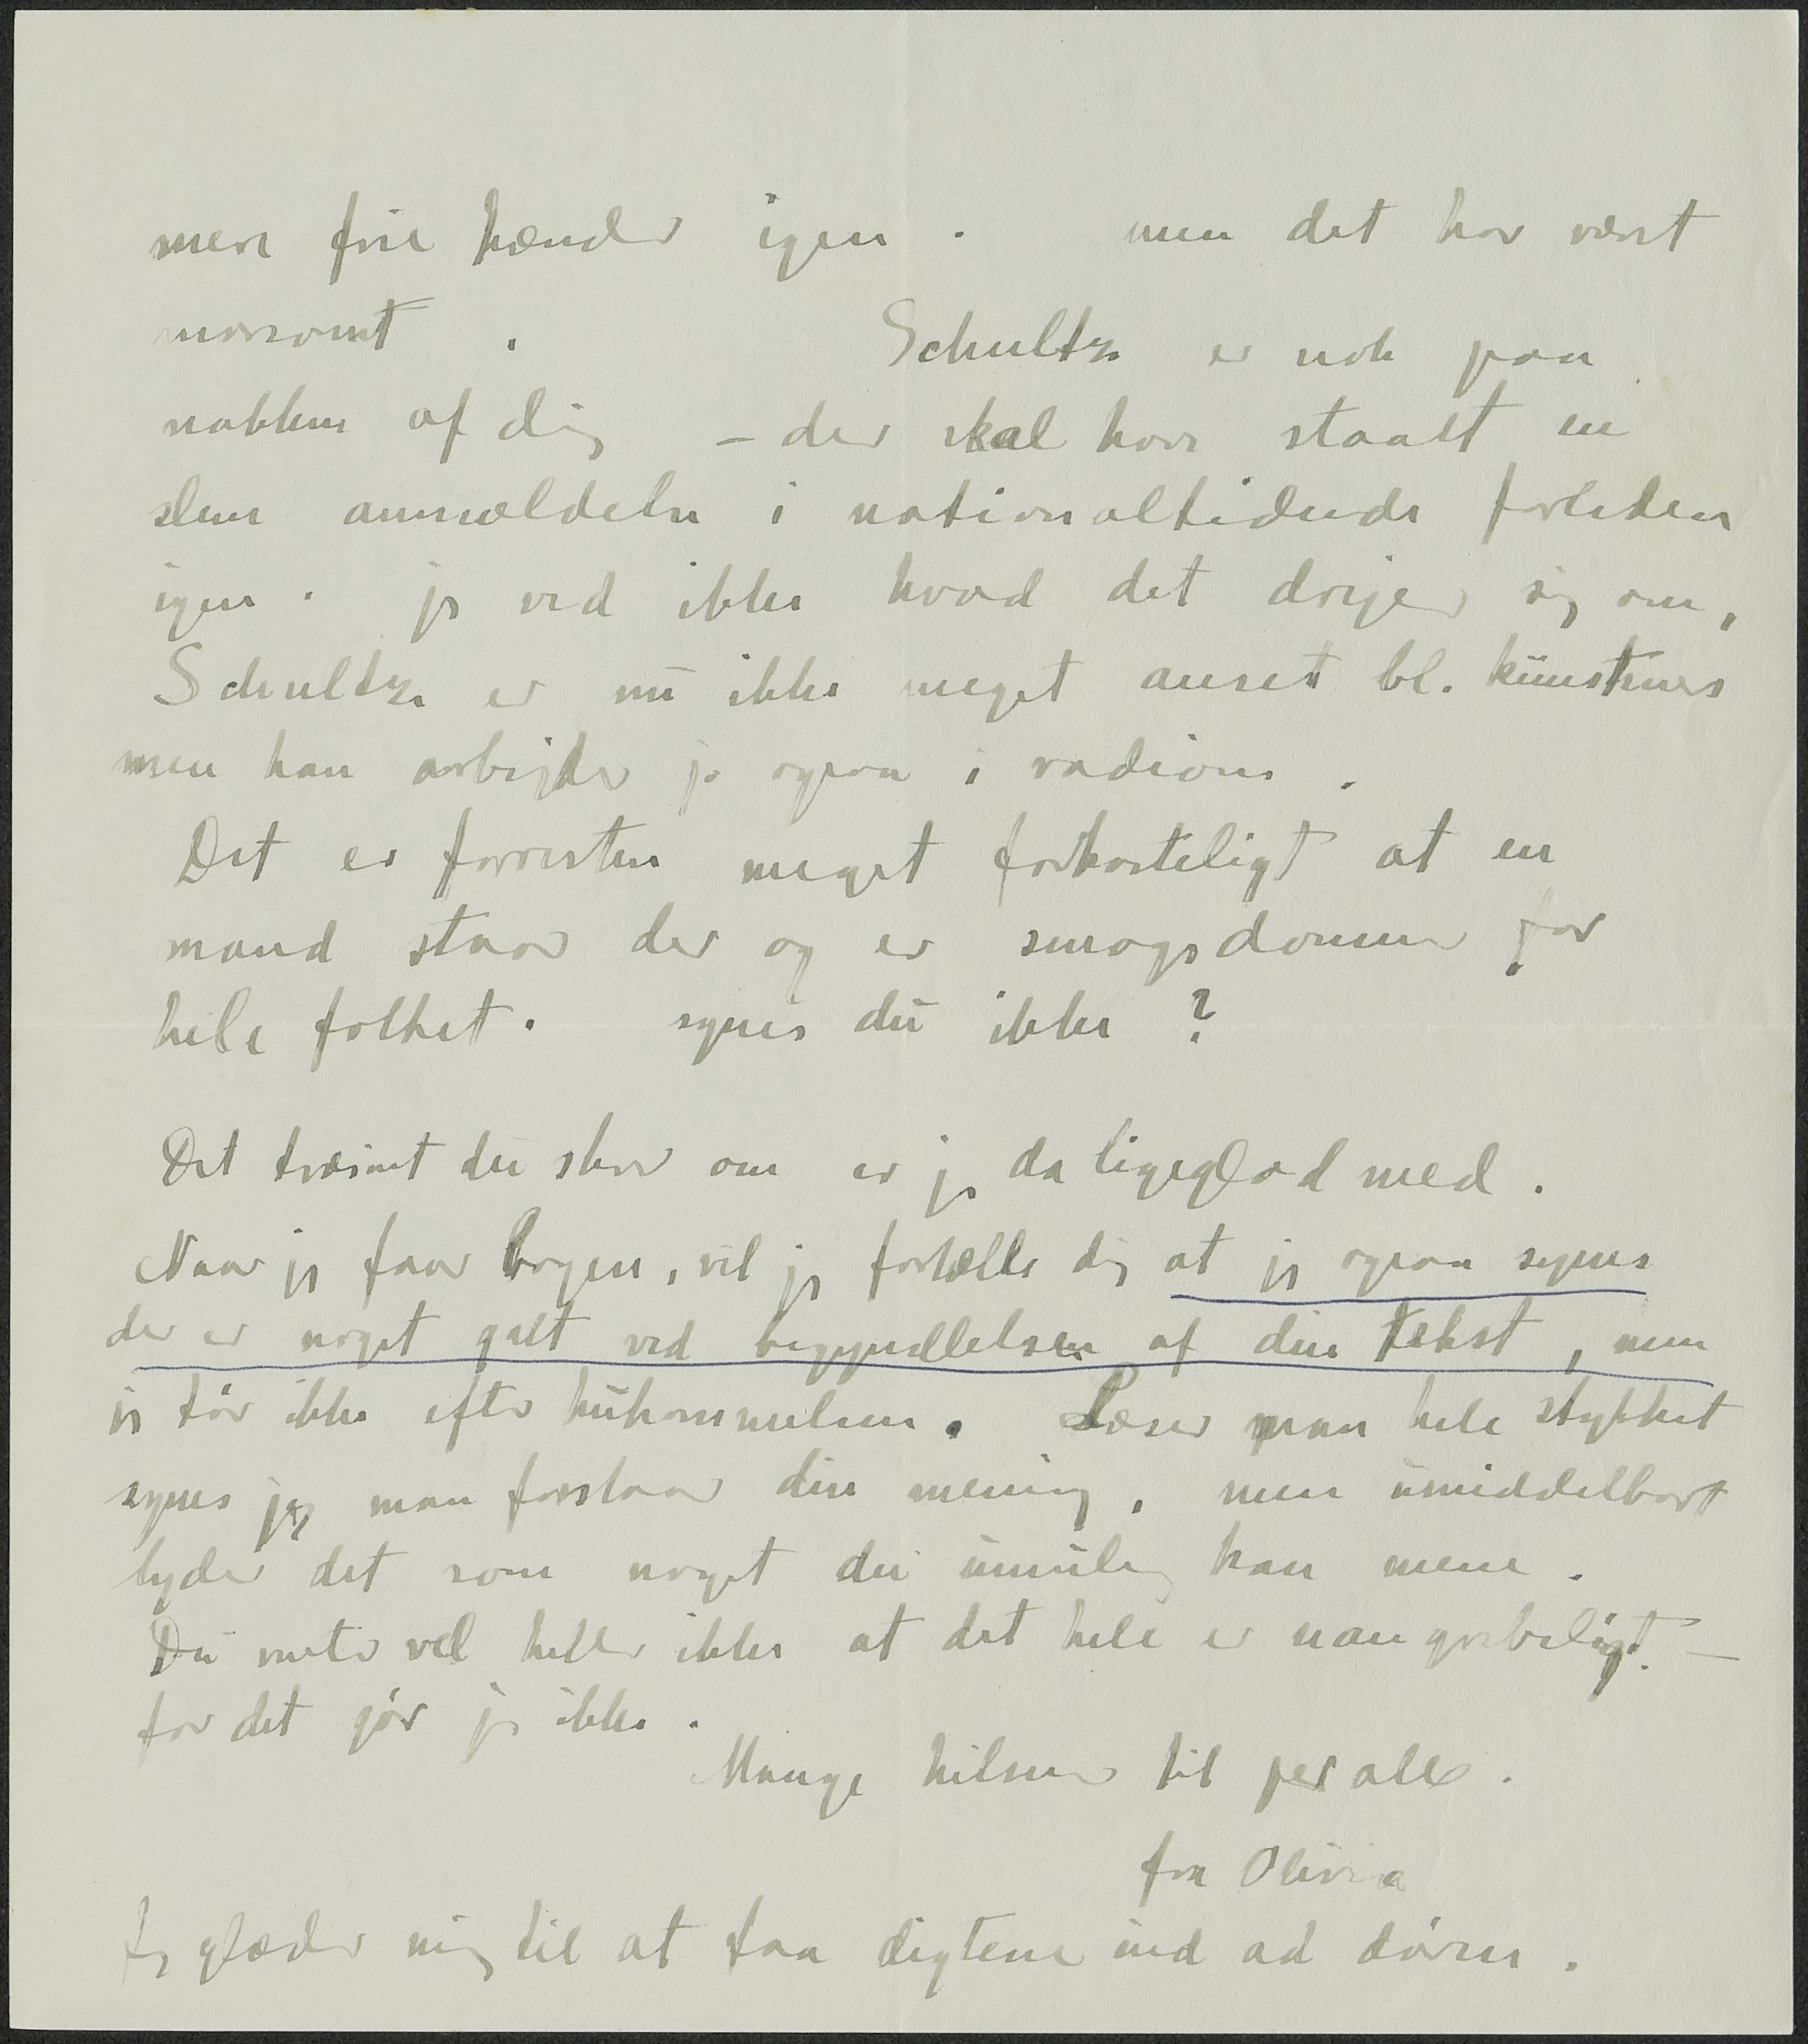 mere frie hænder igen. men det har været
morsomt. Schultz er nok paa
nakken af dig – der skal have staaet en
slem anmældelse i nationaltidende forleden
igen. jeg ved ikke hvad det drejer sig om,
Schultz er nu ikke meget anset bl. kunstnere
men han arbejder jo ogsaa i radioen.
Det er forresten meget forkasteligt at en
mand staar der og er smagsdommer for
hele folket. synes du ikke?
Det træsnit du skrev om er jeg da ligeglad med.
Naar jeg faar bogen, vil jeg fortælle dig at jeg ogsaa synes
der er noget galt ved begyndelsen af din tekst, men
jeg tør ikke efter hukommelsen. Læser man hele stykket
synes jeg man forstaar din mening, men umiddelbart
lyder det som noget du umulig kan mene.
Du mener vel heller ikke at det hele er uangribeligt. –
for det gør jeg ikke.
Mange hilsener til jer alle.
fra Olivia
Jeg glæder mig til at faa digtene ind ad døren.